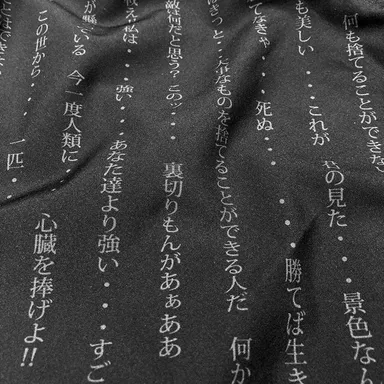 何も捨てることができな
も美しい・・・これが 君の見た・・・景色なん
てなきゃ・・・死ぬ・・・ 勝てば生き
きっと・・大事なものを捨てることができる人だ 何か
敵は何だと思う？ このッ・・・ 裏切りもんがあぁああ
私は・・・強い・・・あなた達より強い・・・すご
が騒いでいる 今一度人類に・・・ 心臓を捧げよ!!
この世から・・・ 一匹・・